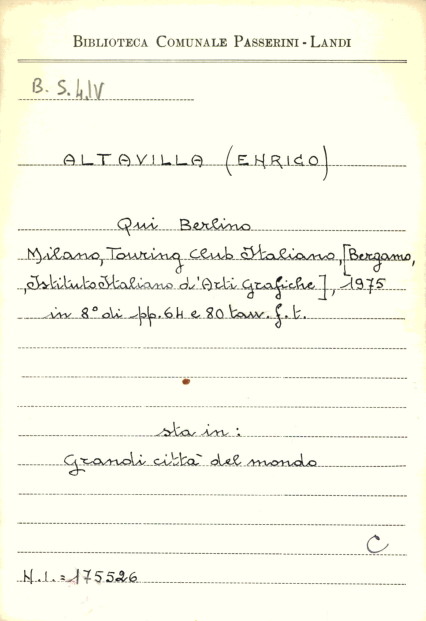 BIBLIOTECA COMUNALE PASSERINI - LANDI
B. S. 4. IV
ALTAVILLA (ENRICO)
Qui Berlino
Milano, Touring Club Italiano, [Bergamo,
, Istituto Italiano d'Arti Grafiche], 1975
in 8° di pp. 64 e 80 tav. f. t.
sta in:
Grandi città del mondo
C
N.I. = 175526